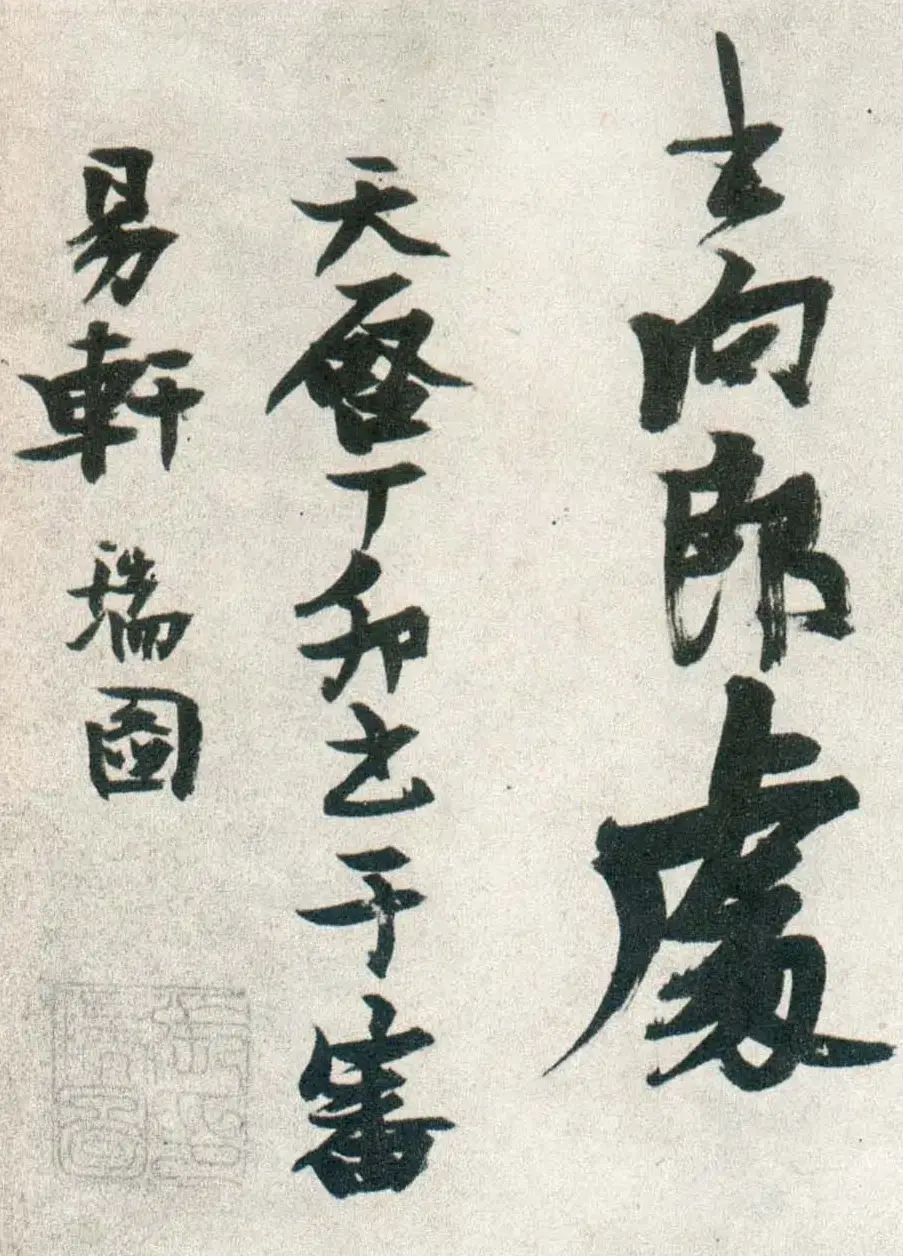 去向那處
天啓丁卯書于審
易軒 瑞圖